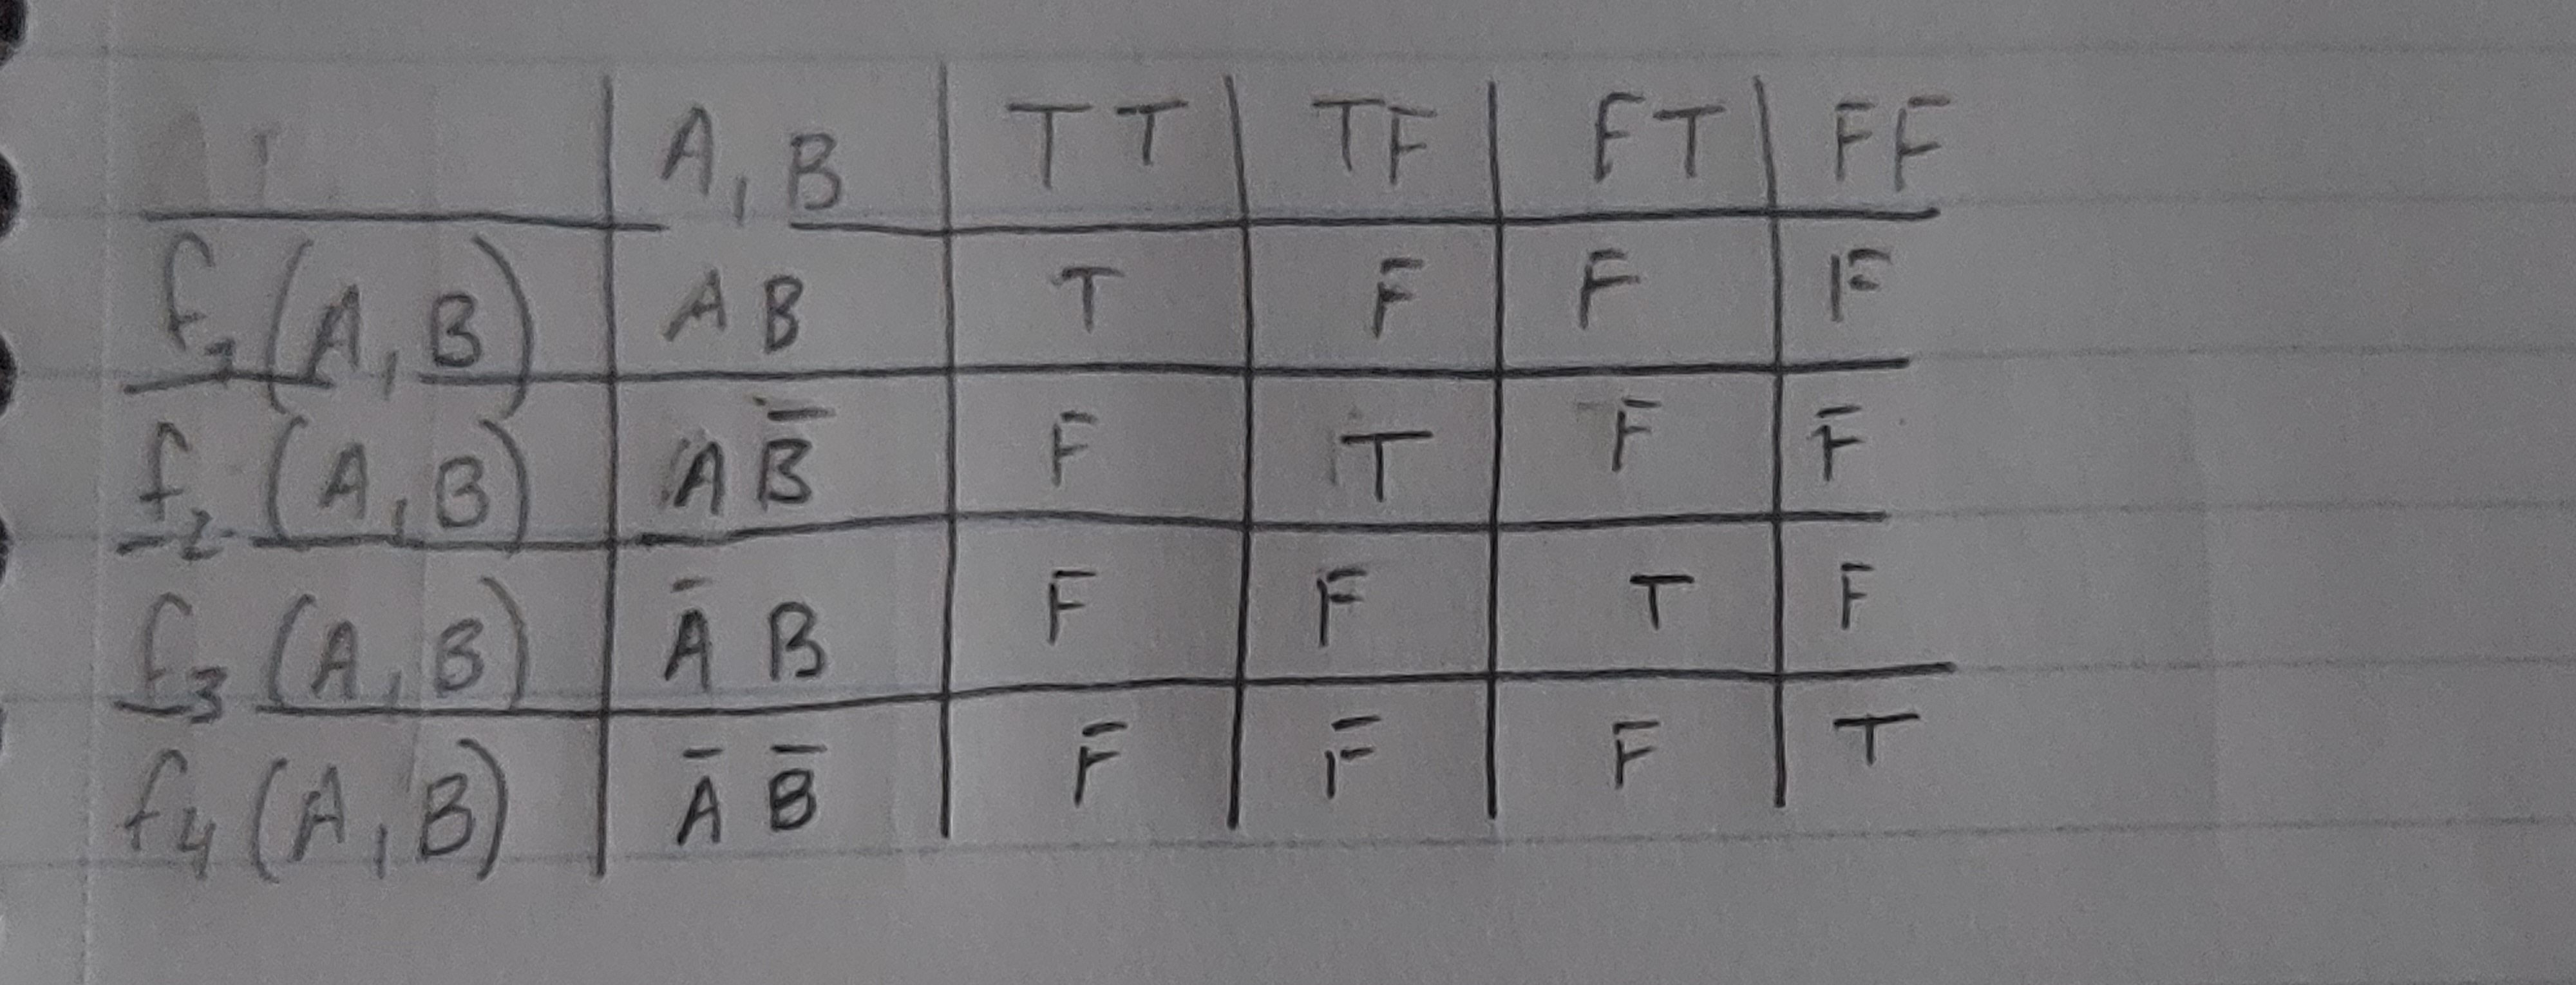 A, B TT TF FT FF
f₁(A, B) A B T F F F
f₂(A, B) A B̅ F T F F
f₃(A, B) A̅ B F F T F
f₄(A, B) A̅ B̅ F F F T